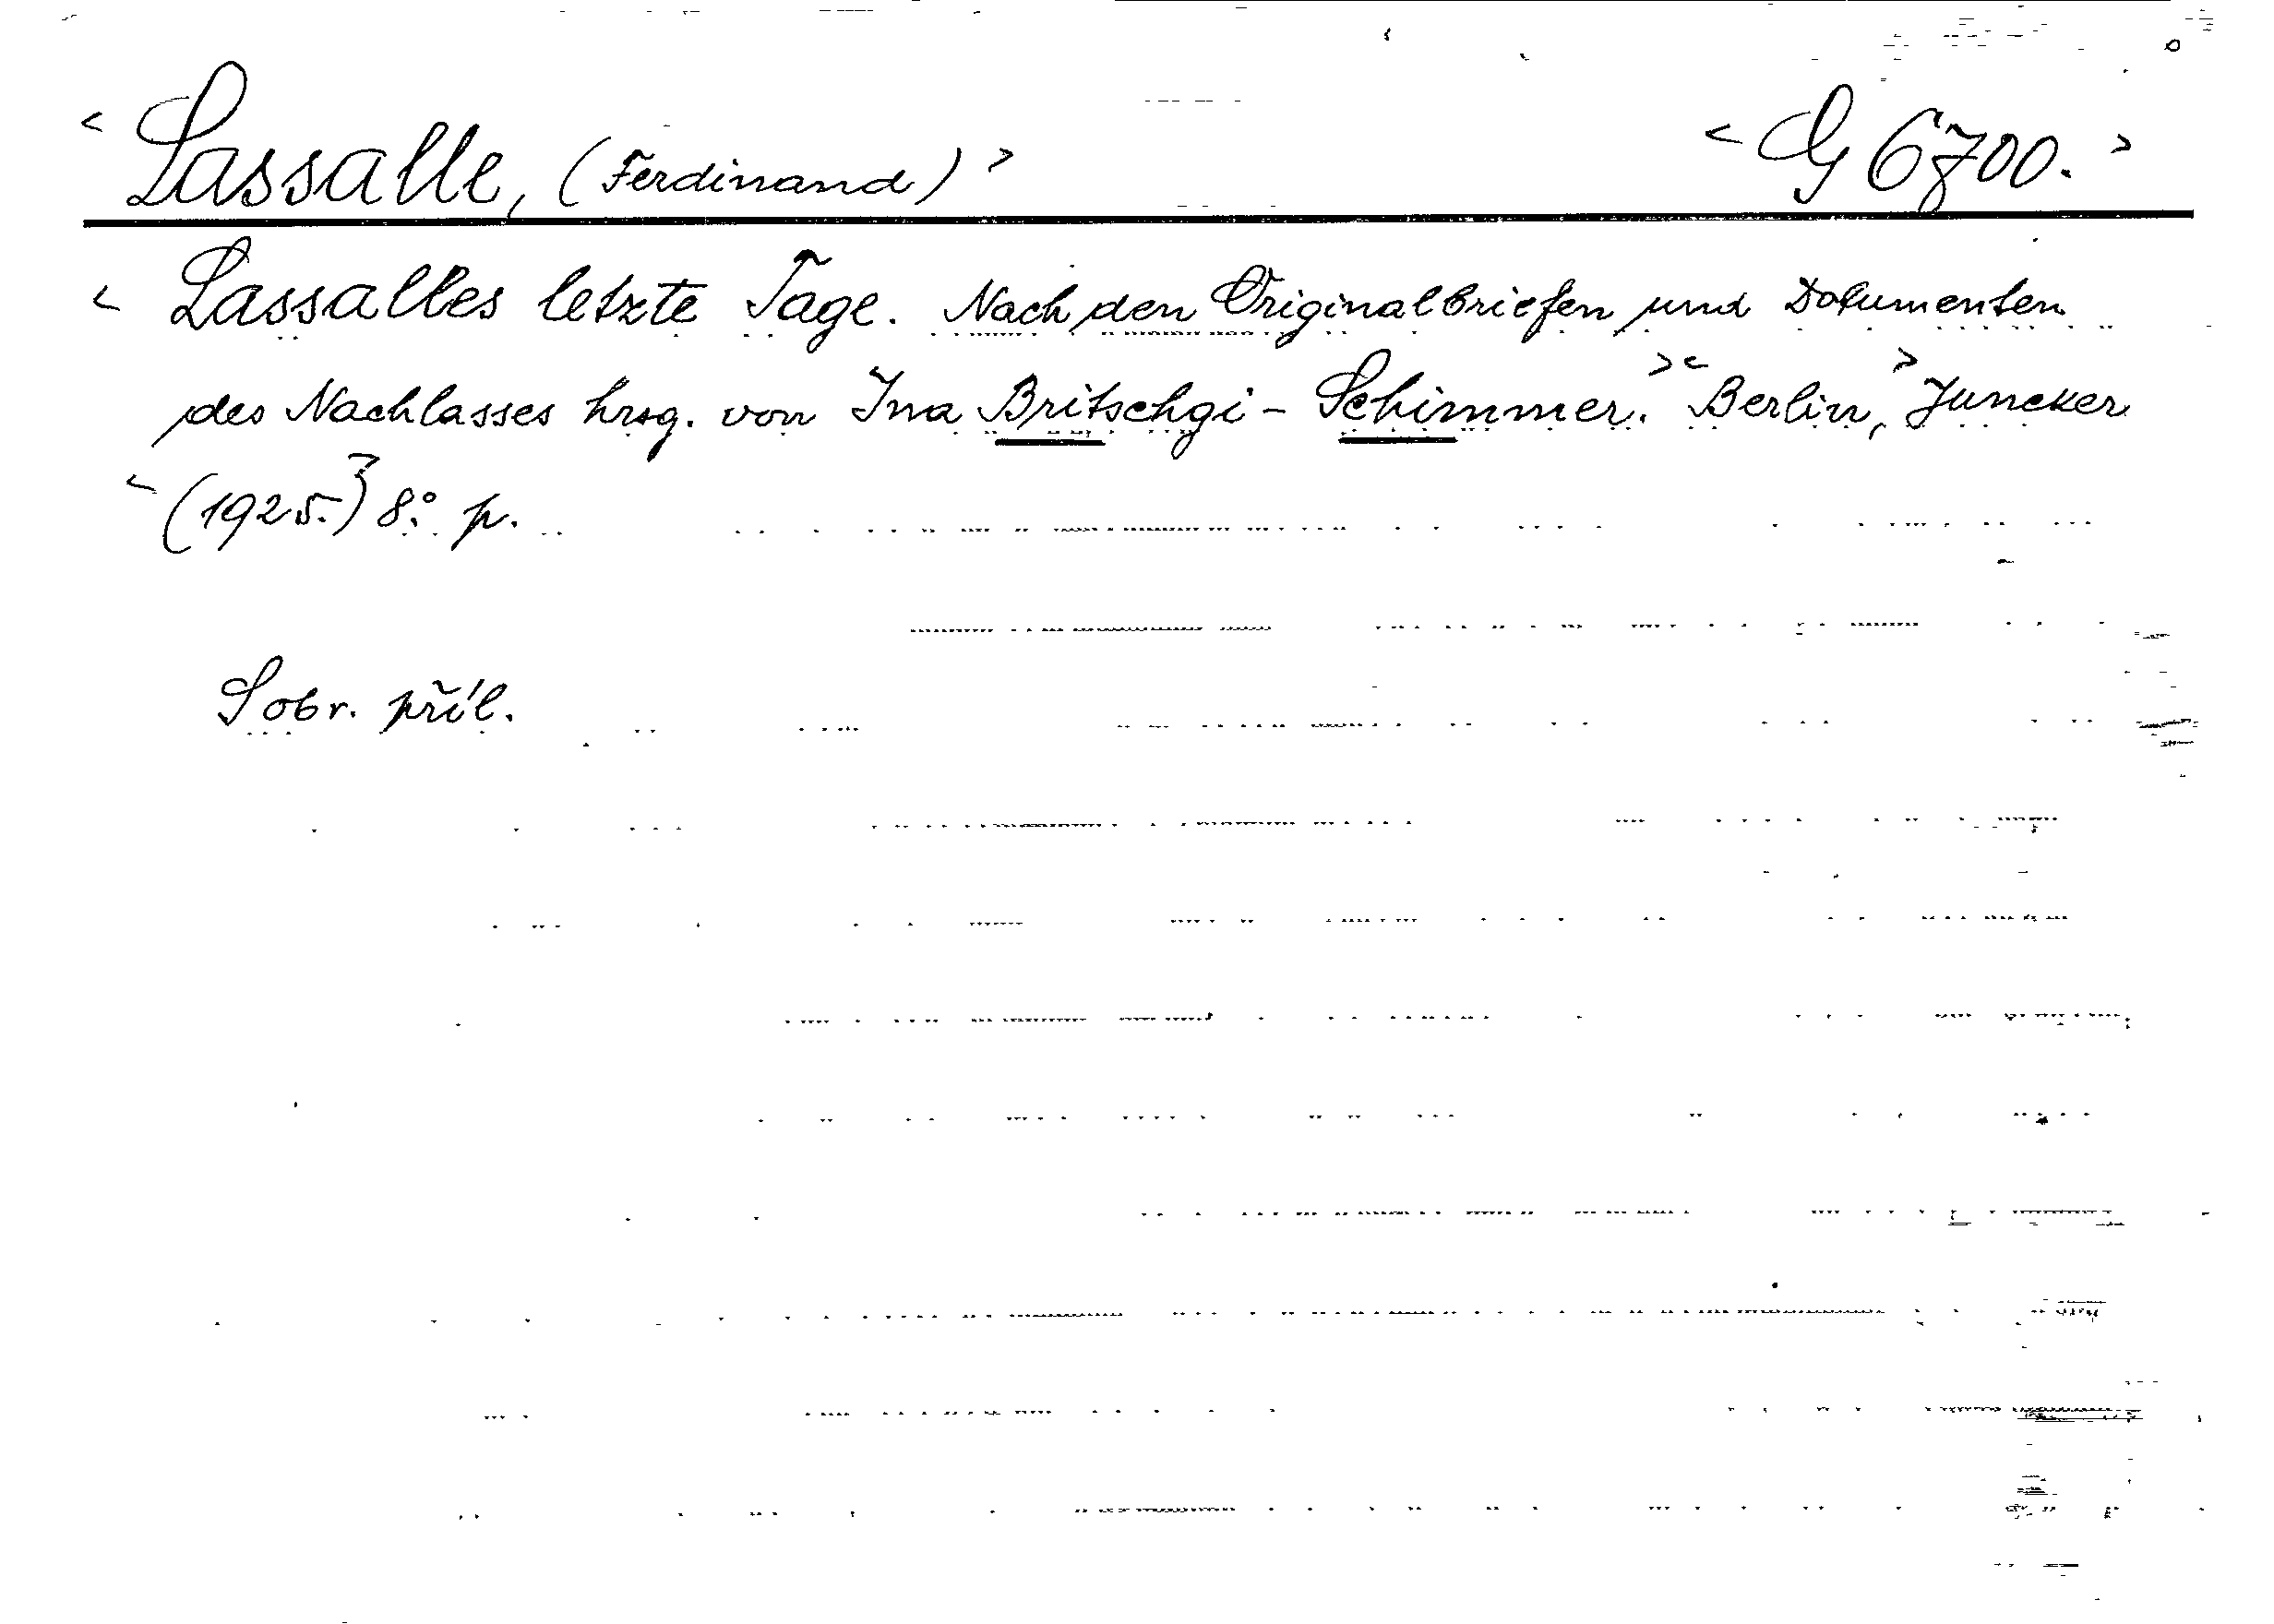 < Lassalle, (Ferdinand) > < G 6700. >
< Lassalles letzte Tage. Nach den Originalbriefen und Dokumenten
des Nachlasses hrsg. von Ina Britschgi-Schimmer. > < Berlin, > Juncker
< (1925.) > 8.° p.
S obr. příl.